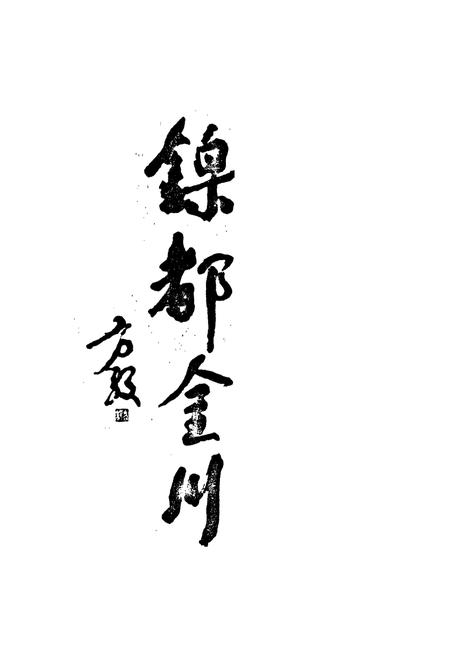 镍都金川
方毅